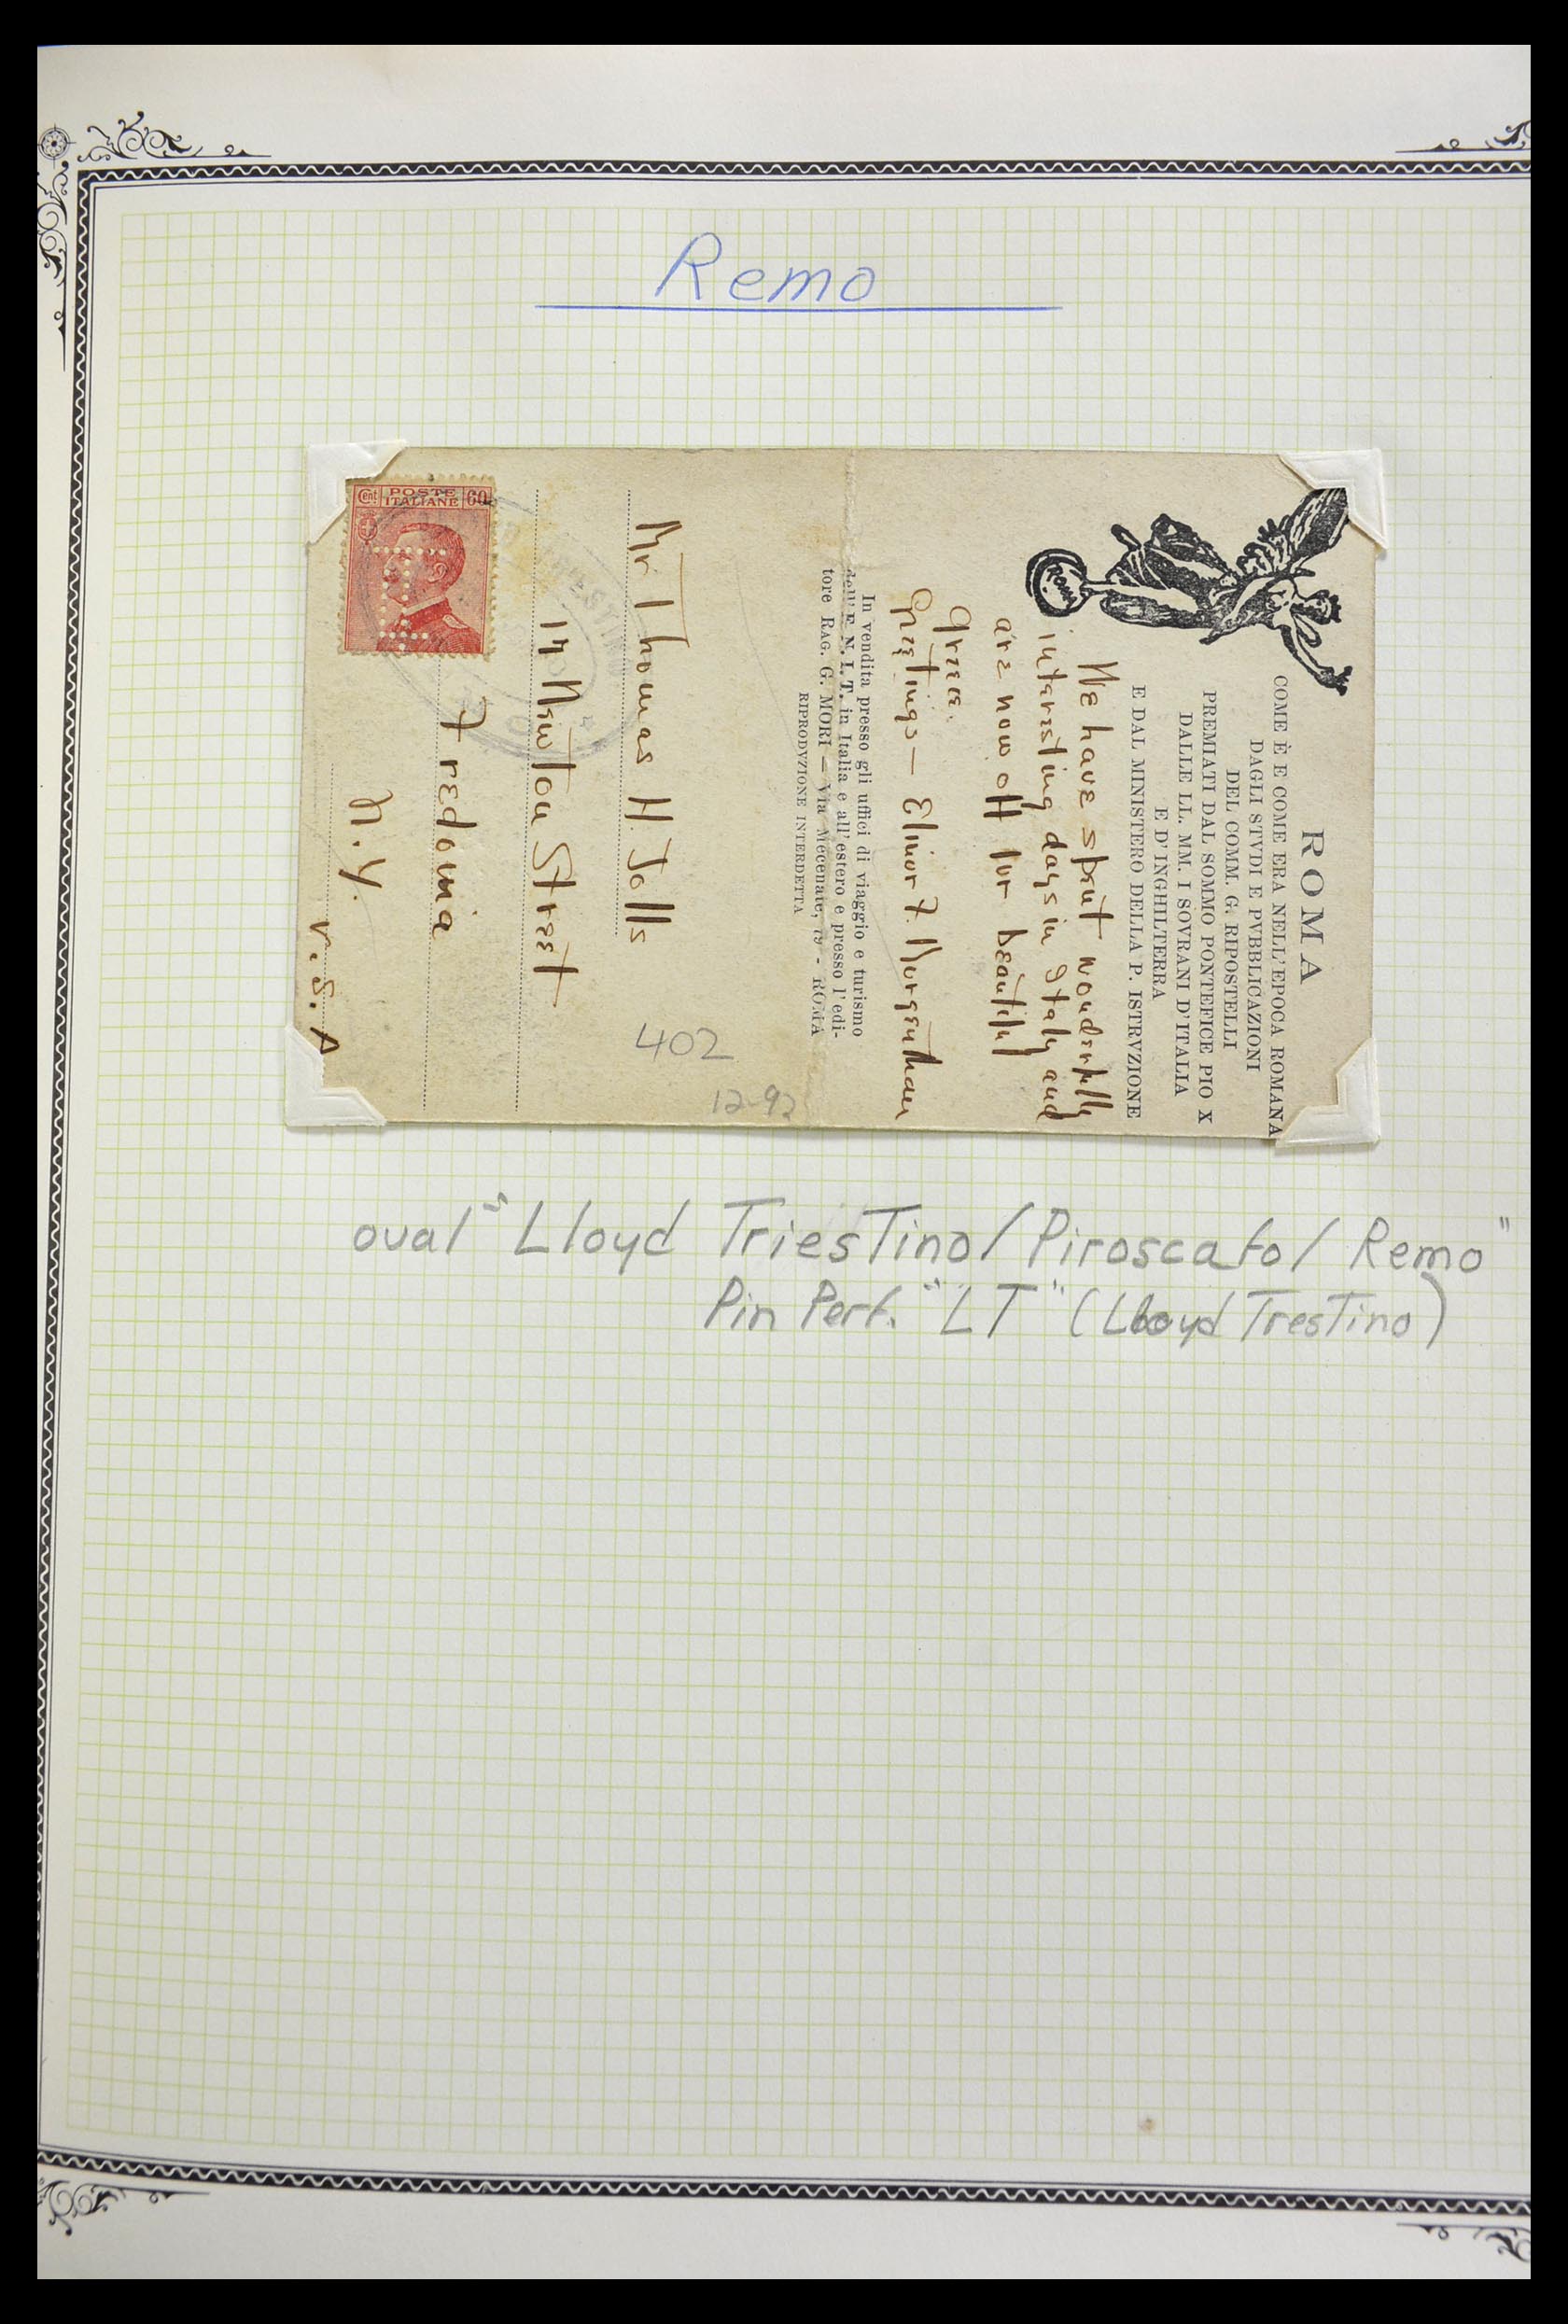 Remo
ROMA
COME È E COME ERA NELL'EPOCA ROMANA
DAGLI STVDI E PVBBLICAZIONI
DEL COMM. G. RIPOSTELLI
PREMIATI DAL SOMMO PONTEFICE PIO X
DALLE LL. MM. I SOVRANI D'ITALIA
E D'INGHILTERRA
E DAL MINISTERO DELLA P. ISTRVZIONE
ROMA
We have spent wonderfully
interesting days in Italy and
are now off for beautiful
Greece.
Greetings — Elinor F. Morgenthau
In vendita presso gli uffici di viaggio e turismo
dell'E. N. I. T. in Italia e all'estero e presso l'edi-
tore RAG. G. MORI — Via Mecenate, - ROMA
RIPRODVZIONE INTERDETTA
Mr Thomas H. Jolls
Newton Street
Fredonia
N. Y.
U. S. A
Cent POSTE ITALIANE 60
LT
402
12-92
oval "Lloyd Triestino/Piroscafo/Remo"
Pin Perf. "LT" (Lloyd Trestino)